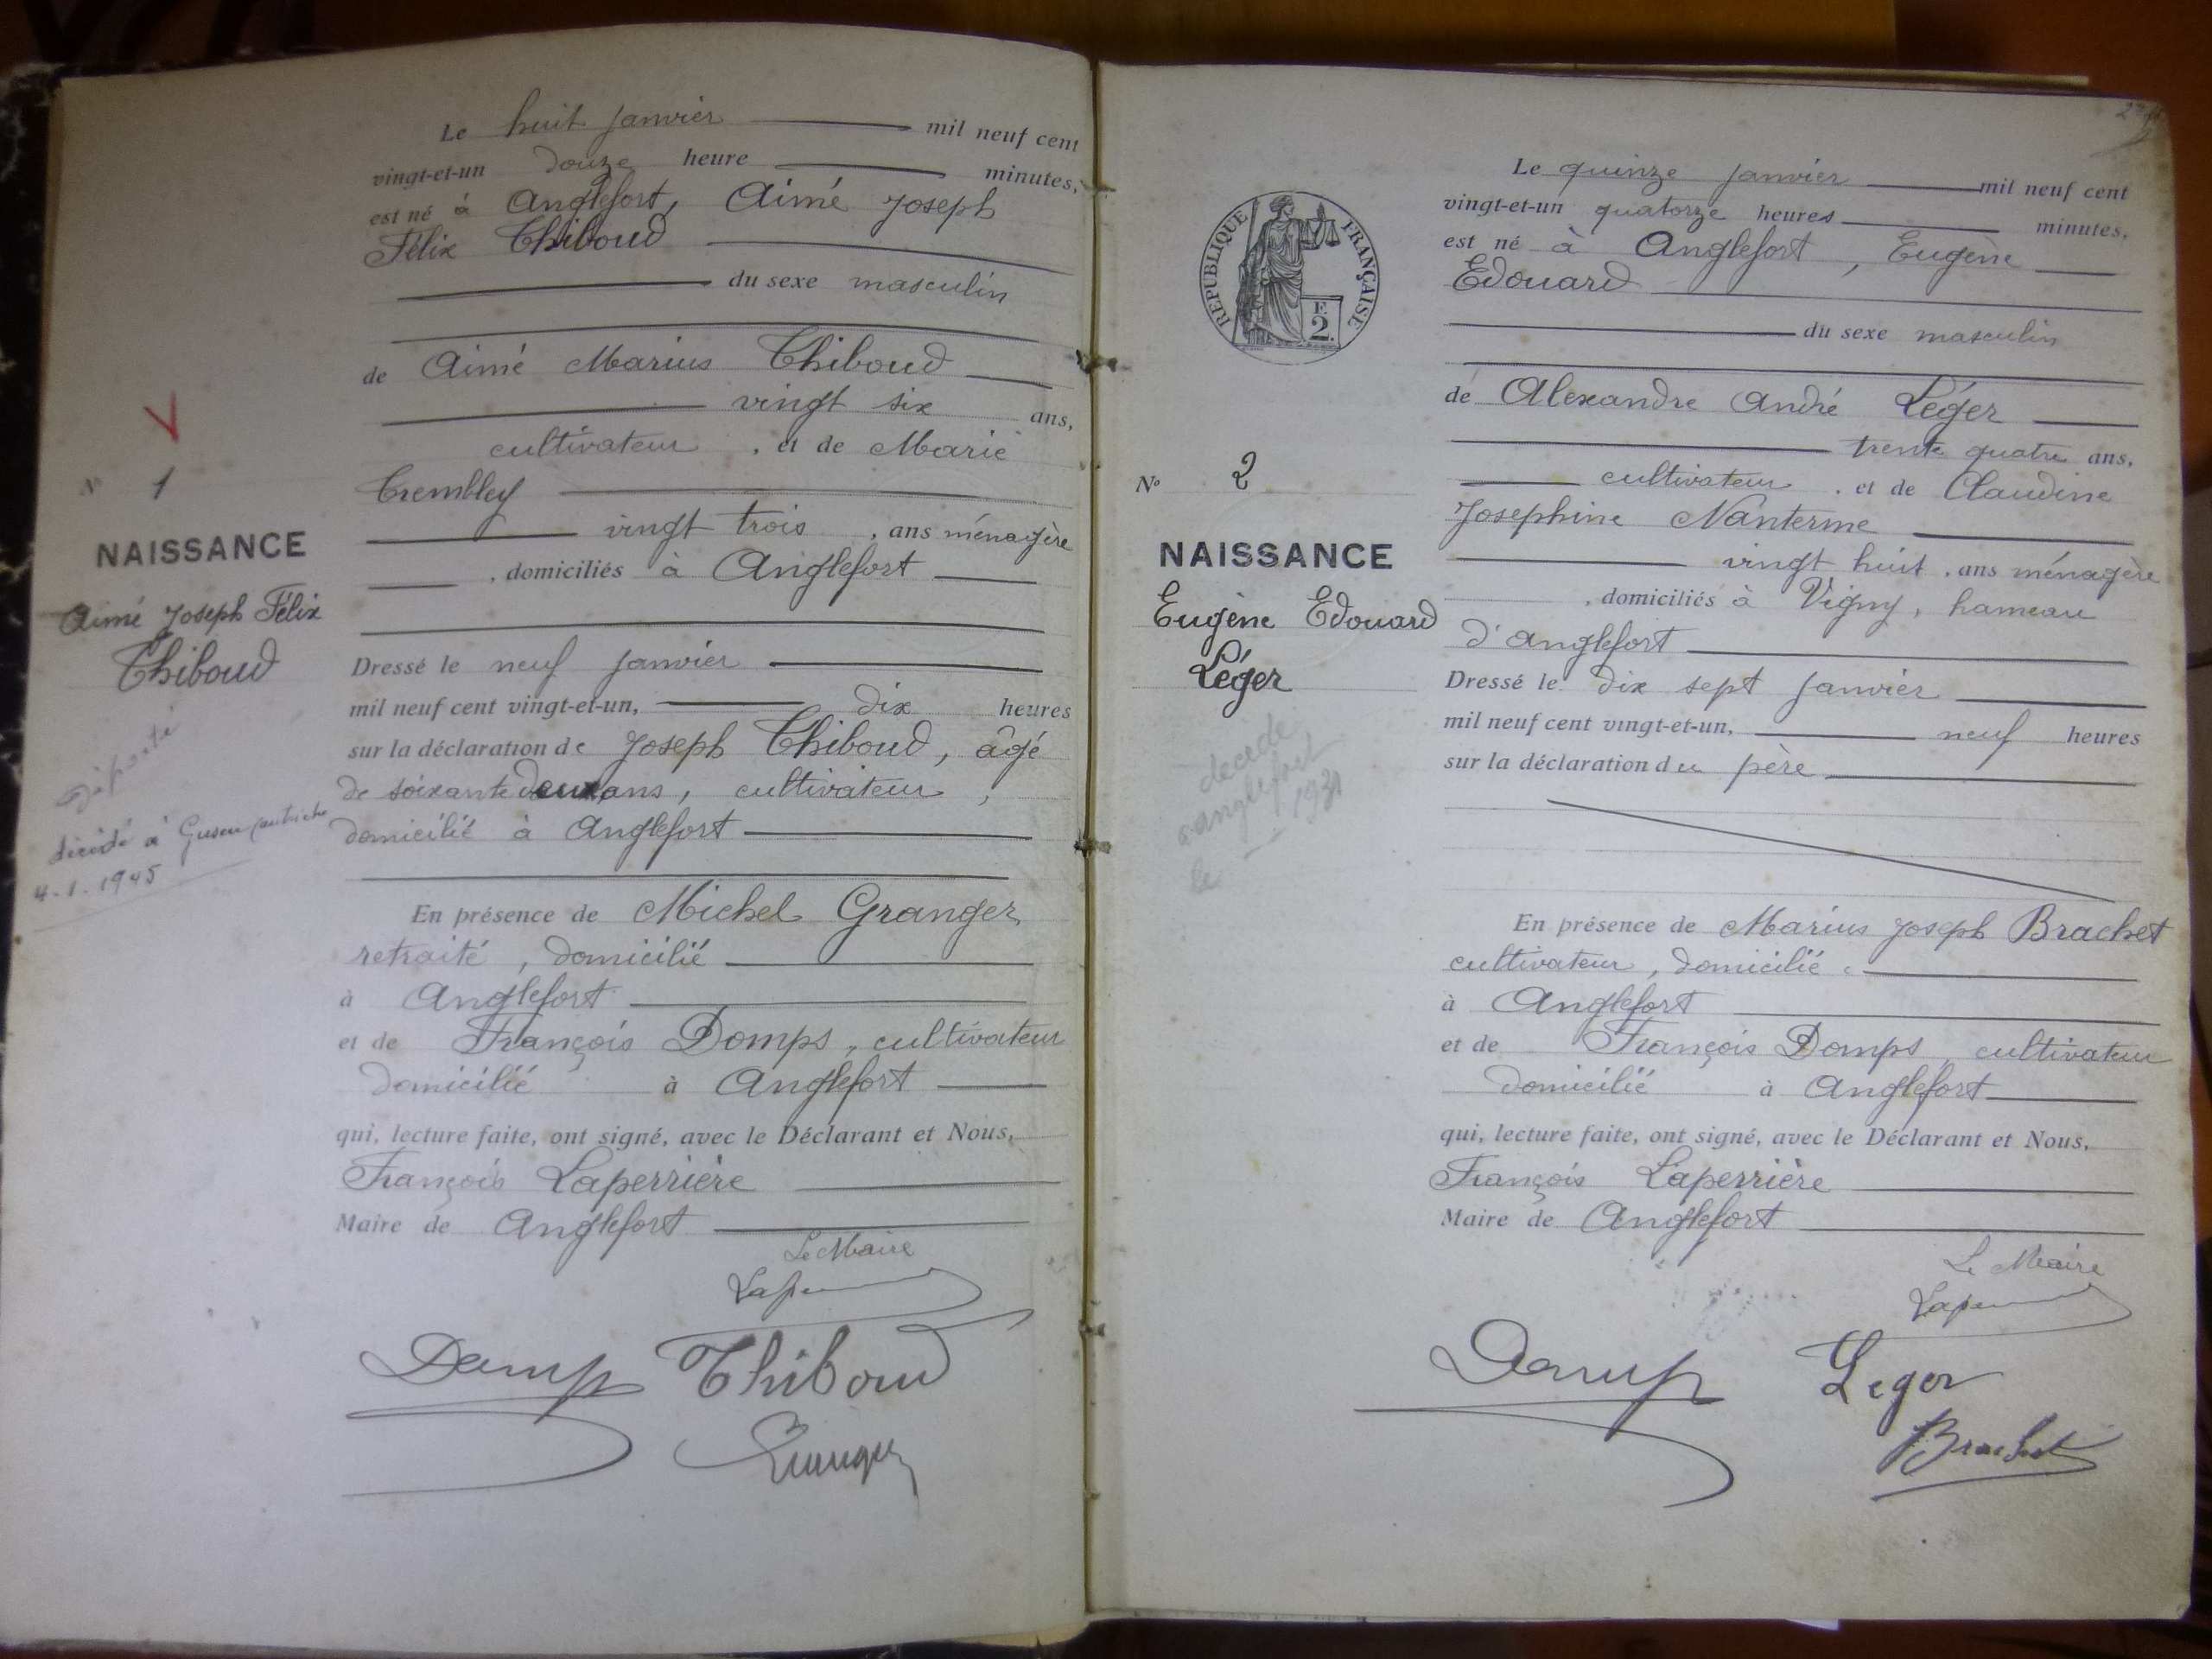 Le huit janvier mil neuf cent
vingt-et-un douze heure minutes,
est né à Anglefort, Aimé Joseph
Félix Thiboud
du sexe masculin
de Aimé Marius Thiboud
vingt six ans,
cultivateur, et de Marie
Trembley
vingt trois, ans ménagère
, domiciliés à Anglefort
Dressé le neuf janvier
mil neuf cent vingt-et-un, dix heures
sur la déclaration de Joseph Thiboud, âgé
de soixante deux ans, cultivateur,
domicilié à Anglefort
En présence de Michel Granger
retraité, domicilié
à Anglefort
et de François Domps, cultivateur
domicilié à Anglefort
qui, lecture faite, ont signé, avec le Déclarant et Nous,
François Laperrière
Maire de Anglefort
Le Maire
Damp Thiboud
Granger
N° 1
NAISSANCE
Aimé Joseph Félix
Thiboud
Déporté
décédé à Gusen (autriche
4.1.1945
RÉPUBLIQUE FRANÇAISE
F.
2.
Le quinze janvier mil neuf cent
vingt-et-un quatorze heures minutes,
est né à Anglefort, Eugène
Edouard
du sexe masculin
de Alexandre André Léger
trente quatre ans,
cultivateur, et de Claudine
Josephine Nanterme
vingt huit, ans ménagère
, domiciliés à Vigny, hameau
d'anglefort
Dressé le dix sept janvier
mil neuf cent vingt-et-un, neuf heures
sur la déclaration du père
En présence de Marius Joseph Brachet
cultivateur, domicilié
à Anglefort
et de François Domps, cultivateur
domicilié à Anglefort
qui, lecture faite, ont signé, avec le Déclarant et Nous,
François Laperrière
Maire de Anglefort
Le Maire
Damp Leger
Brachet
N° 2
NAISSANCE
Eugène Edouard
Léger
decede
anglefort
le -- 1931